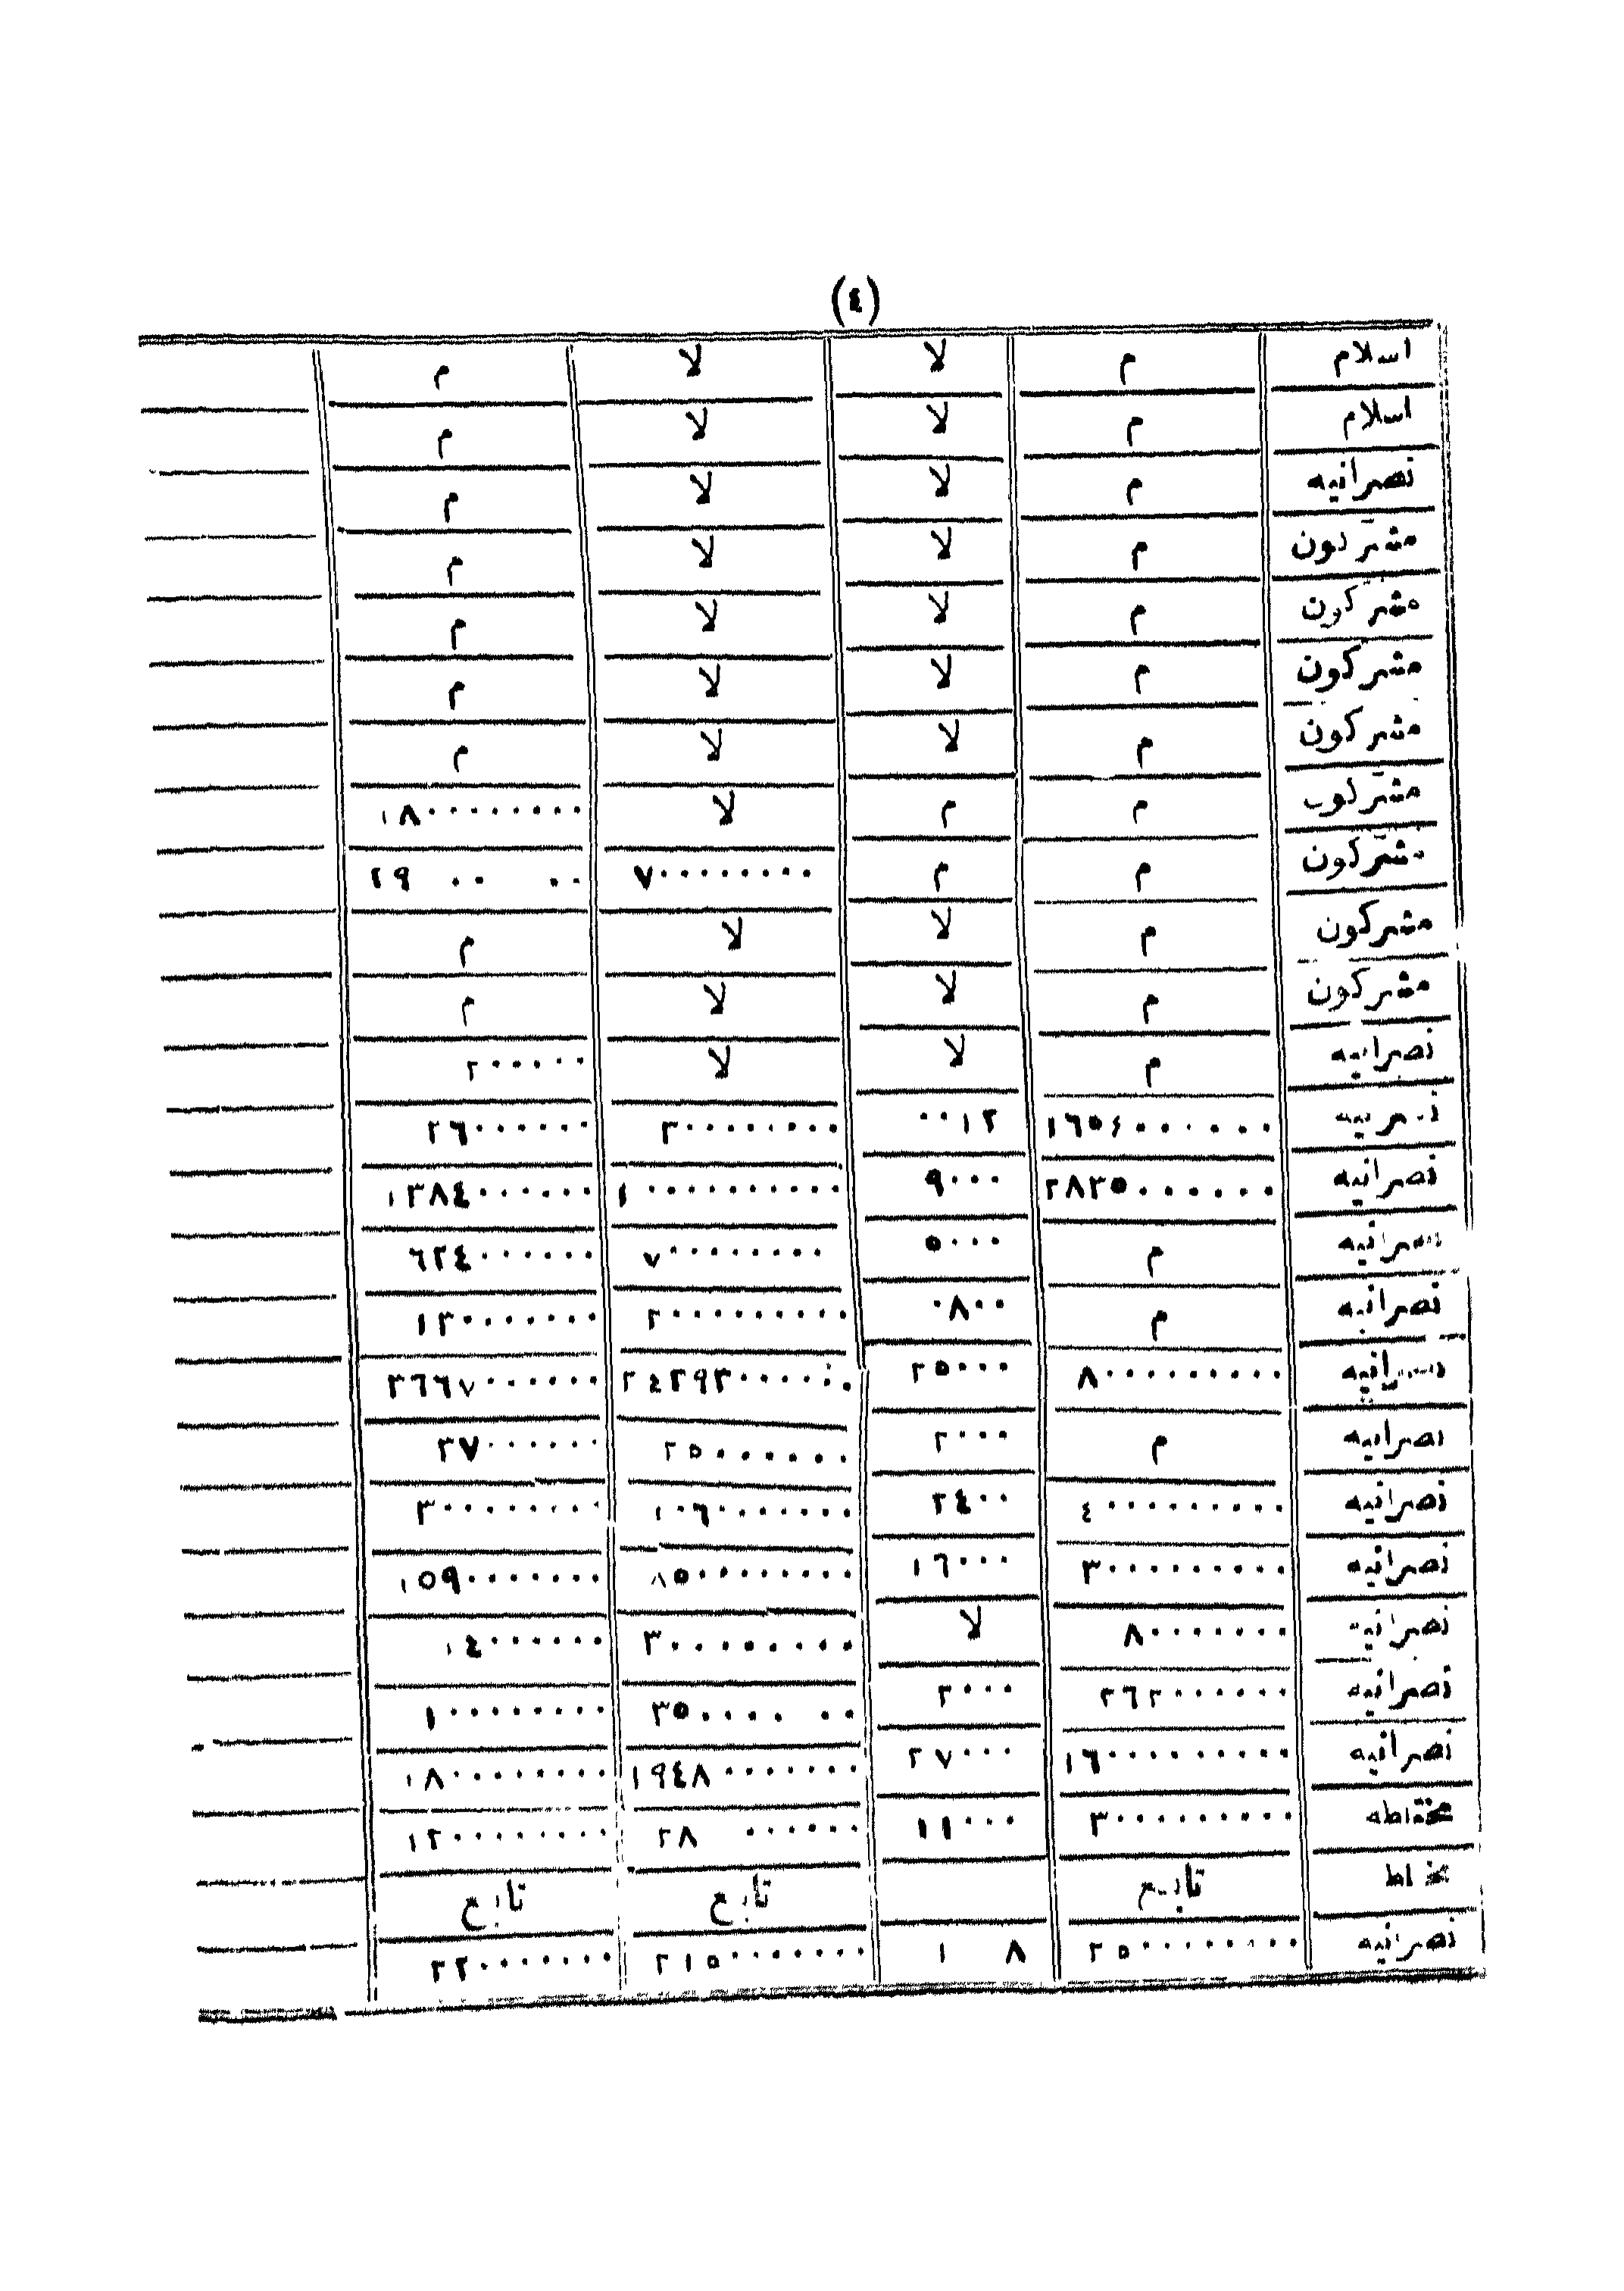 (٤)
اسلام م لا لا م
اسلام م لا لا م
نصرانيه م لا لا م
م لا لا م
مشركون م لا لا م
مشركون م لا لا م
مشركون م لا لا م
م م لا ١٨٠٠٠٠٠٠٠٠
مشركون م م ٧٠٠٠٠٠٠٠٠
مشركون م لا لا م
مشركون م لا لا م
نصرانيه م لا لا ٢٠٠٠٠٠
١٦٥٤٠٠٠٠٠٠٠ ٣٠٠٠٠٠٠٠٠ ٢٦٠٠٠٠٠٠
نصرانيه ٢٨٣٥٠٠٠٠٠٠ ٩٠٠٠ ١٠٠٠٠٠٠٠٠٠٠ ١٣٨٤٠٠٠٠٠٠
نصرانيه م ٥٠٠٠ ٧٠٠٠٠٠٠٠٠ ٦٢٤٠٠٠٠٠٠
نصرانيه م ٠٨٠٠ ٢٠٠٠٠٠٠٠٠٠ ١٣٠٠٠٠٠٠٠
نصرانيه ٨٠٠٠٠٠٠٠٠٠ ٢٥٠٠٠ ٣٦٦٧٠٠٠٠٠٠
نصرانيه م ٢٠٠٠ ٢٥٠٠٠٠٠٠ ٣٧٠٠٠٠٠٠
نصرانيه ٤٠٠٠٠٠٠٠٠٠ ٢٤٠٠ ١٠٦٠٠٠٠٠٠٠ ٣٠٠٠٠٠٠٠٠
نصرانيه ٣٠٠٠٠٠٠٠٠٠ ١٦٠٠٠ ٨٥٠٠٠٠٠٠٠٠ ١٥٩٠٠٠٠٠٠٠
نصرانيه ٨٠٠٠٠٠٠٠ لا ٣٠٠٠٠٠٠٠٠ ١٤٠٠٠٠٠٠
نصرانيه ٢٦٢٠٠٠٠٠٠ ٢٠٠٠ ١٠٠٠٠٠٠٠٠
نصرانيه ١٦٠٠٠٠٠٠٠٠٠ ٢٧٠٠٠ ١٩٤٨٠٠٠٠٠٠٠ ١٨٠٠٠٠٠٠٠٠
مختلطه ٣٠٠٠٠٠٠٠٠٠ ١١٠٠٠ ١٢٠٠٠٠٠٠٠٠
تابع تابع تابع
نصرانيه ٢٥٠٠٠٠٠٠٠٠ ٢١٥٠٠٠٠٠٠٠ ٢٢٠٠٠٠٠٠٠